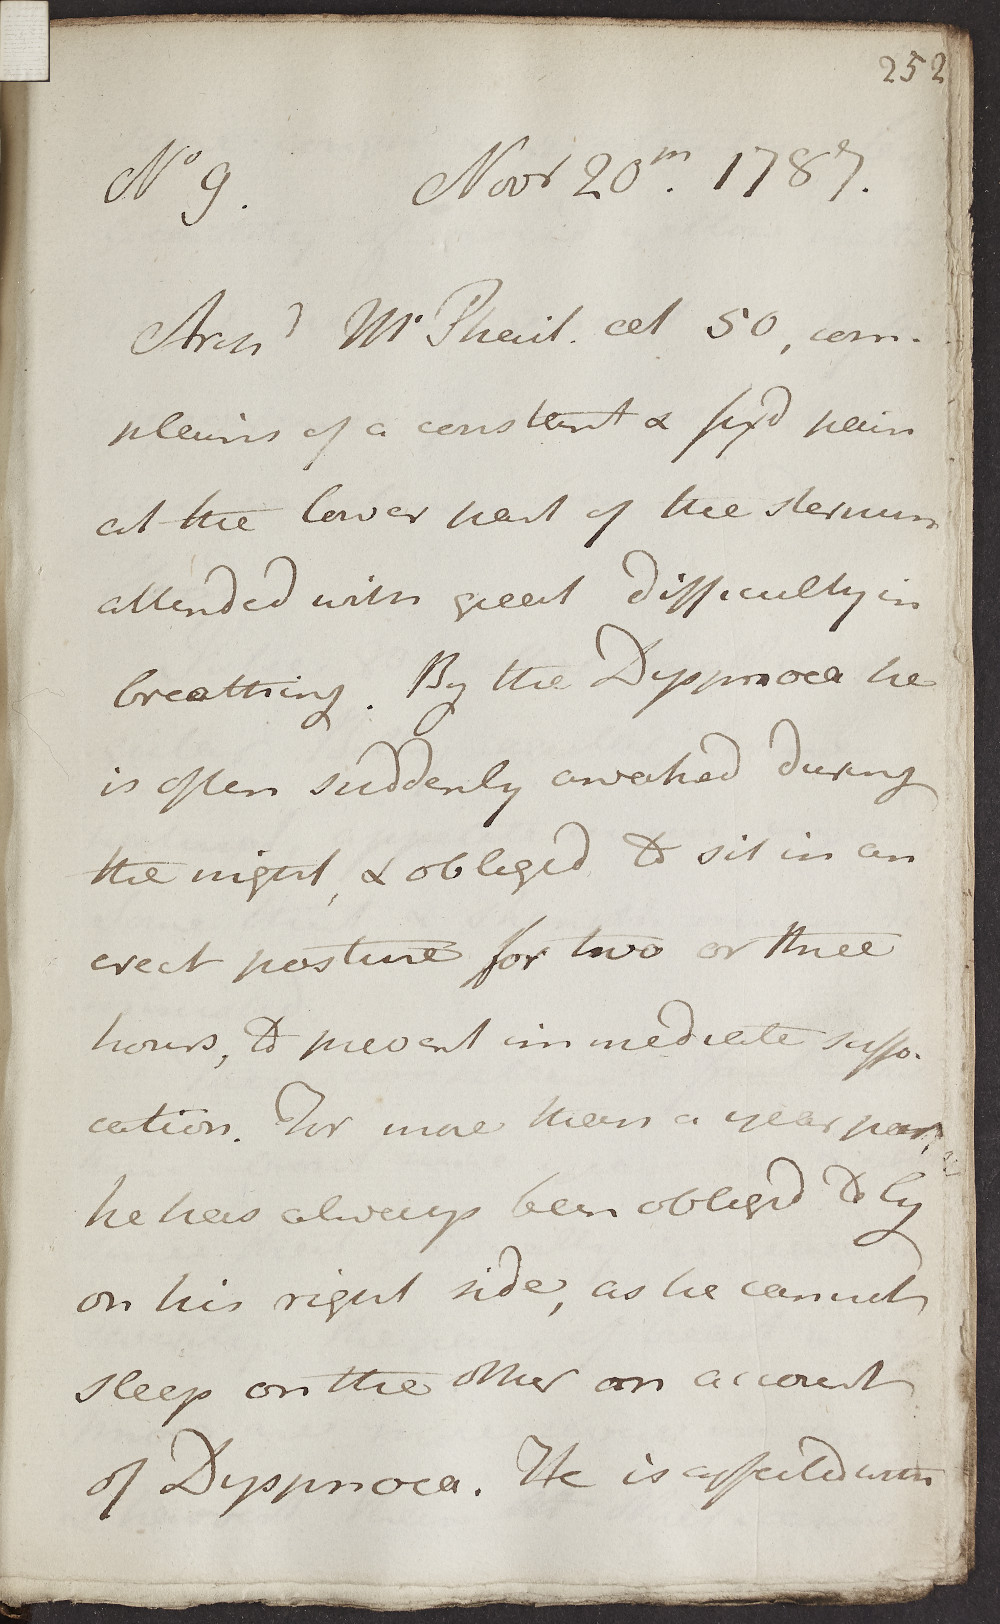 252
No 9. Novr 20th. 1787.
Archd McPhail. aet 50, com-
plains of a constant & fix'd pain
at the lower part of the sternum
attended with great difficulty in
breathing. By the Dyspnoea he
is often suddenly awaked during
the night, & obliged to sit in an
erect posture for two or three
hours, to prevent immediate suffo-
cation. For more than a year past
he has always been obliged to ly
on his right side, as he cannot
sleep on the other on account
of Dyspnoea. He is affected with